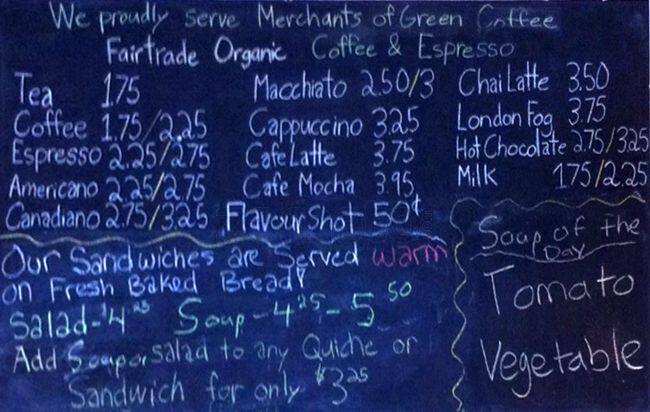 We proudly serve Merchants of Green Coffee
Fairtrade Organic Coffee & Espresso
Tea 1.75
Coffee 1.75/2.25
Espresso 2.25/2.75
Americano 2.25/2.75
Canadiano 2.75/3.25
Macchiato 2.50/3
Cappuccino 3.25
Cafe Latte 3.75
Cafe Mocha 3.95
Flavour Shot 50¢
Chai Latte 3.50
London Fog 3.75
Hot Chocolate 2.75/3.25
Milk 1.75/2.25
Our Sandwiches are Served warm
on Fresh Baked Bread!
Salad - $4.25 Soup - 4.25 - 5.50
Add Soup or salad to any Quiche or
Sandwich for only $3.25
Soup of the
Day
Tomato
Vegetable